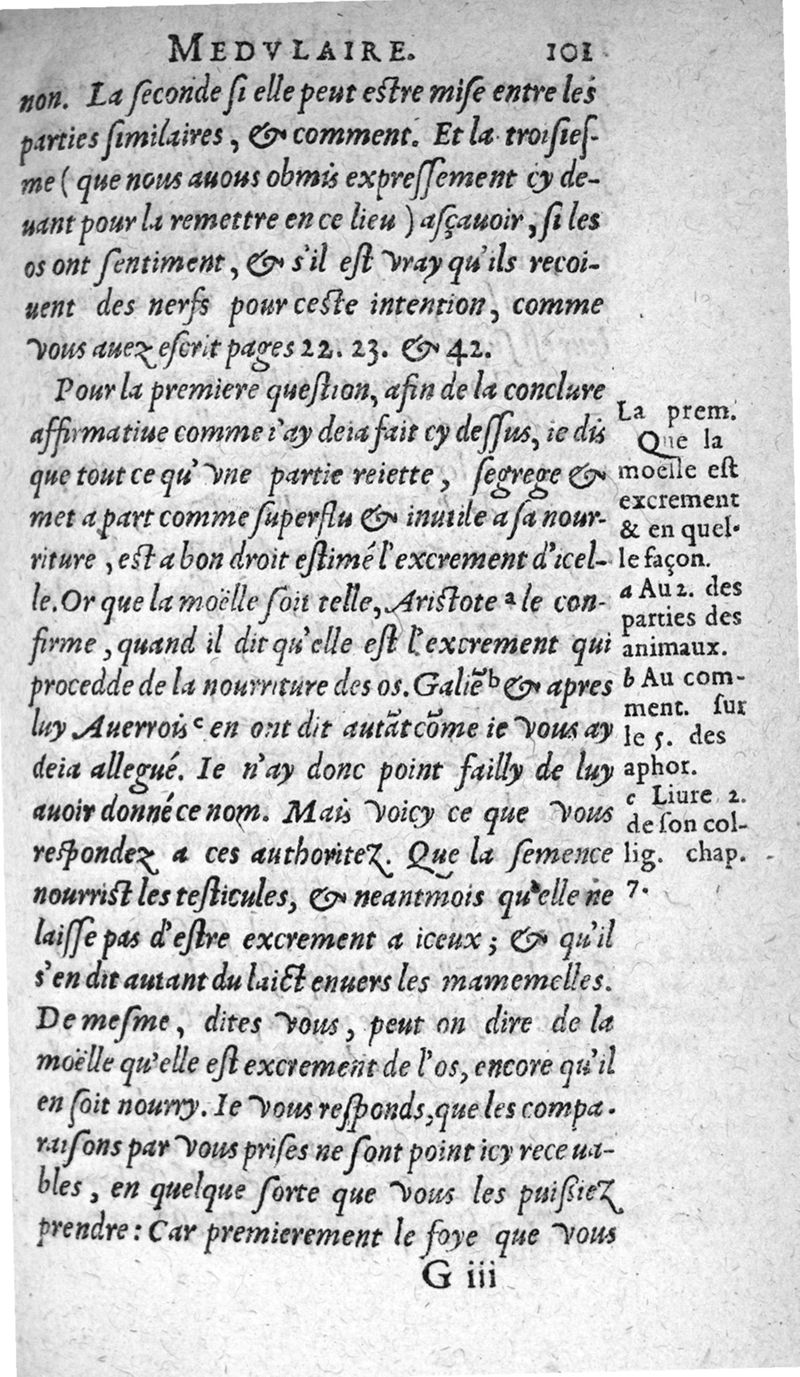 MEDVLAIRE. 101
non. La ſeconde ſi elle peut eſtre miſe entre les
parties ſimilaires, & comment. Et la troiſieſ-
me (que nous auous obmis expreſſement cy de-
uant pour la remettre en ce lieu) aſçauoir, ſi les
os ont ſentiment, & s'il eſt vray qu'ils reçoi-
uent des nerfs pour ceſte intention, comme
vous auez eſcrit pages 22. 23. & 42.
Pour la premiere queſtion, afin de la conclure
affirmatiue comme i'ay deia fait cy deſſus, ie dis
que tout ce qu'vne partie reiette, ſegrege &
met a part comme ſuperflu & inutile a ſa nour-
riture, eſt a bon droit eſtimé l'excrement d'icel-
le. Or que la moëlle ſoit telle, Ariſtote a le con-
firme, quand il dit qu'elle eſt l'excrement qui
procedde de la nourriture des os. Galiē b & apres
luy Auerrois c en ont dit autāt cōme ie vous ay
deia allegué. Ie n'ay donc point failly de luy
auoir donné ce nom. Mais voicy ce que vous
reſpondez a ces authoritez. Que la ſemence
nourriſt les teſticules, & neantmois qu'elle ne
laiſſe pas d'eſtre excrement a iceux; & qu'il
s'en dit autant du laict enuers les mamemelles.
De meſme, dites vous, peut on dire de la
moëlle qu'elle eſt excrement de l'os, encore qu'il
en ſoit nourry. Ie vous reſponds, que les compa-
raiſons par vous priſes ne ſont point icy receua-
bles, en quelque ſorte que vous les puiſſiez
prendre: Car premierement le foye que vous
G iii
La prem.
Que la
moëlle eſt
excrement
& en quel-
le façon.
a Au 2. des
parties des
animaux.
b Au com-
ment. ſur
le 5. des
aphor.
c Liure 2.
de ſon col-
lig. chap.
7.